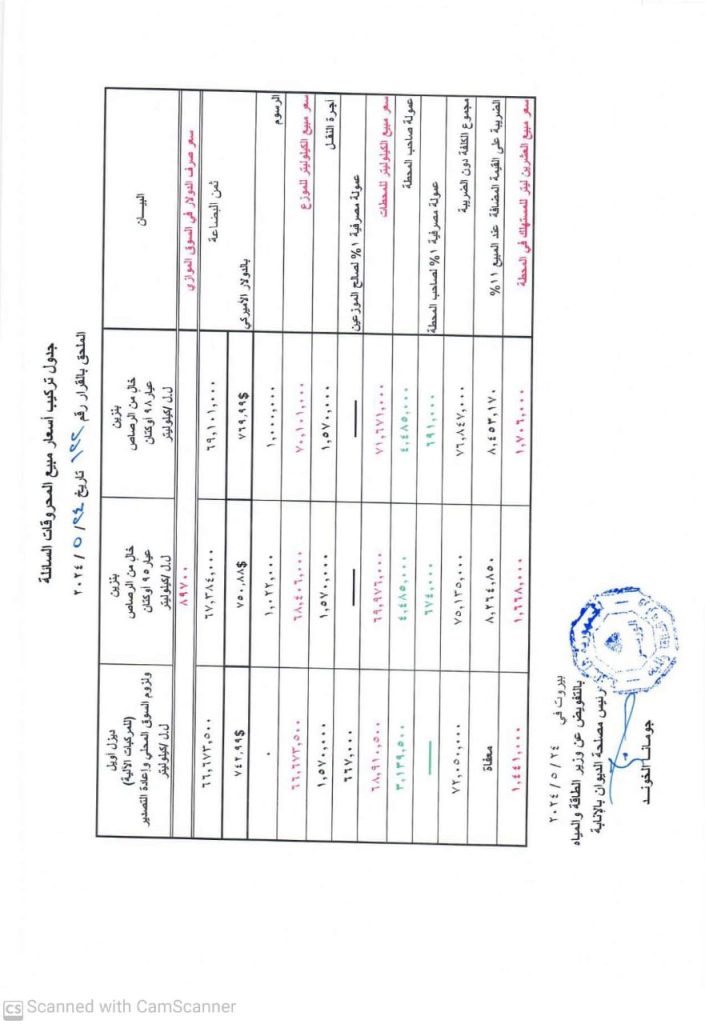 جدول تركيب أسعار مبيع المحروقات السائلة
الملحق بالقرار رقم تاريخ ٢٤ / ٥ / ٢٠٢٤
البيـــان
بنزين عيار ٩٨ أوكتان خالٍ من الرصاص ل.ل/كيلوليتر
بنزين عيار ٩٥ أوكتان خالٍ من الرصاص ل.ل/كيلوليتر
ديزل أويل (للمركبات الآلية) ولزوم السوق المحلي وإعادة التصدير ل.ل/كيلوليتر
سعر صرف الدولار في السوق الموازي ٨٩٧٠٠
ثمن البضاعة ٦٩,١٠١,٠٠٠ ٦٧,٣٨٤,٠٠٠ ٦٦,٦٧٣,٥٠٠
بالدولار الأميركي ٧٦٩,٩٩$ ٧٥٠,٨٨$ ٧٤٢,٩٩$
الرسوم ١,٠٠٠,٠٠٠ ١,٠٢٢,٠٠٠ ٠
سعر مبيع الكيلوليتر للموزع ٧٠,١٠١,٠٠٠ ٦٨,٤٠٦,٠٠٠ ٦٦,٦٧٣,٥٠٠
أجرة النقل ١,٥٧٠,٠٠٠ ١,٥٧٠,٠٠٠ ١,٥٧٠,٠٠٠
عمولة مصرفية ١% لصالح الموزعين — — ٦٦٧,٠٠٠
سعر مبيع الكيلوليتر للمحطات ٧١,٦٧١,٠٠٠ ٦٩,٩٧٦,٠٠٠ ٦٨,٩١٠,٥٠٠
عمولة صاحب المحطة ٤,٤٨٥,٠٠٠ ٤,٤٨٥,٠٠٠ ٣,١٣٩,٥٠٠
عمولة مصرفية ١% لصاحب المحطة ٦٩١,٠٠٠ ٦٧٤,٠٠٠ —
مجموع الكلفة دون الضريبة ٧٦,٨٤٧,٠٠٠ ٧٥,١٣٥,٠٠٠ ٧٢,٠٥٠,٠٠٠
الضريبة على القيمة المضافة عند المبيع ١١% ٨,٤٥٣,١٧٠ ٨,٢٦٤,٨٥٠ معفاة
سعر مبيع العشرين ليتر للمستهلك في المحطة ١,٧٠٦,٠٠٠ ١,٦٦٨,٠٠٠ ١,٤٤١,٠٠٠
بيروت في ٢٤ / ٥ / ٢٠٢٤
بالتفويض عن وزير الطاقة والمياه
رئيس مصلحة الديوان بالإنابة
جومانـا الخونـد
CS Scanned with CamScanner